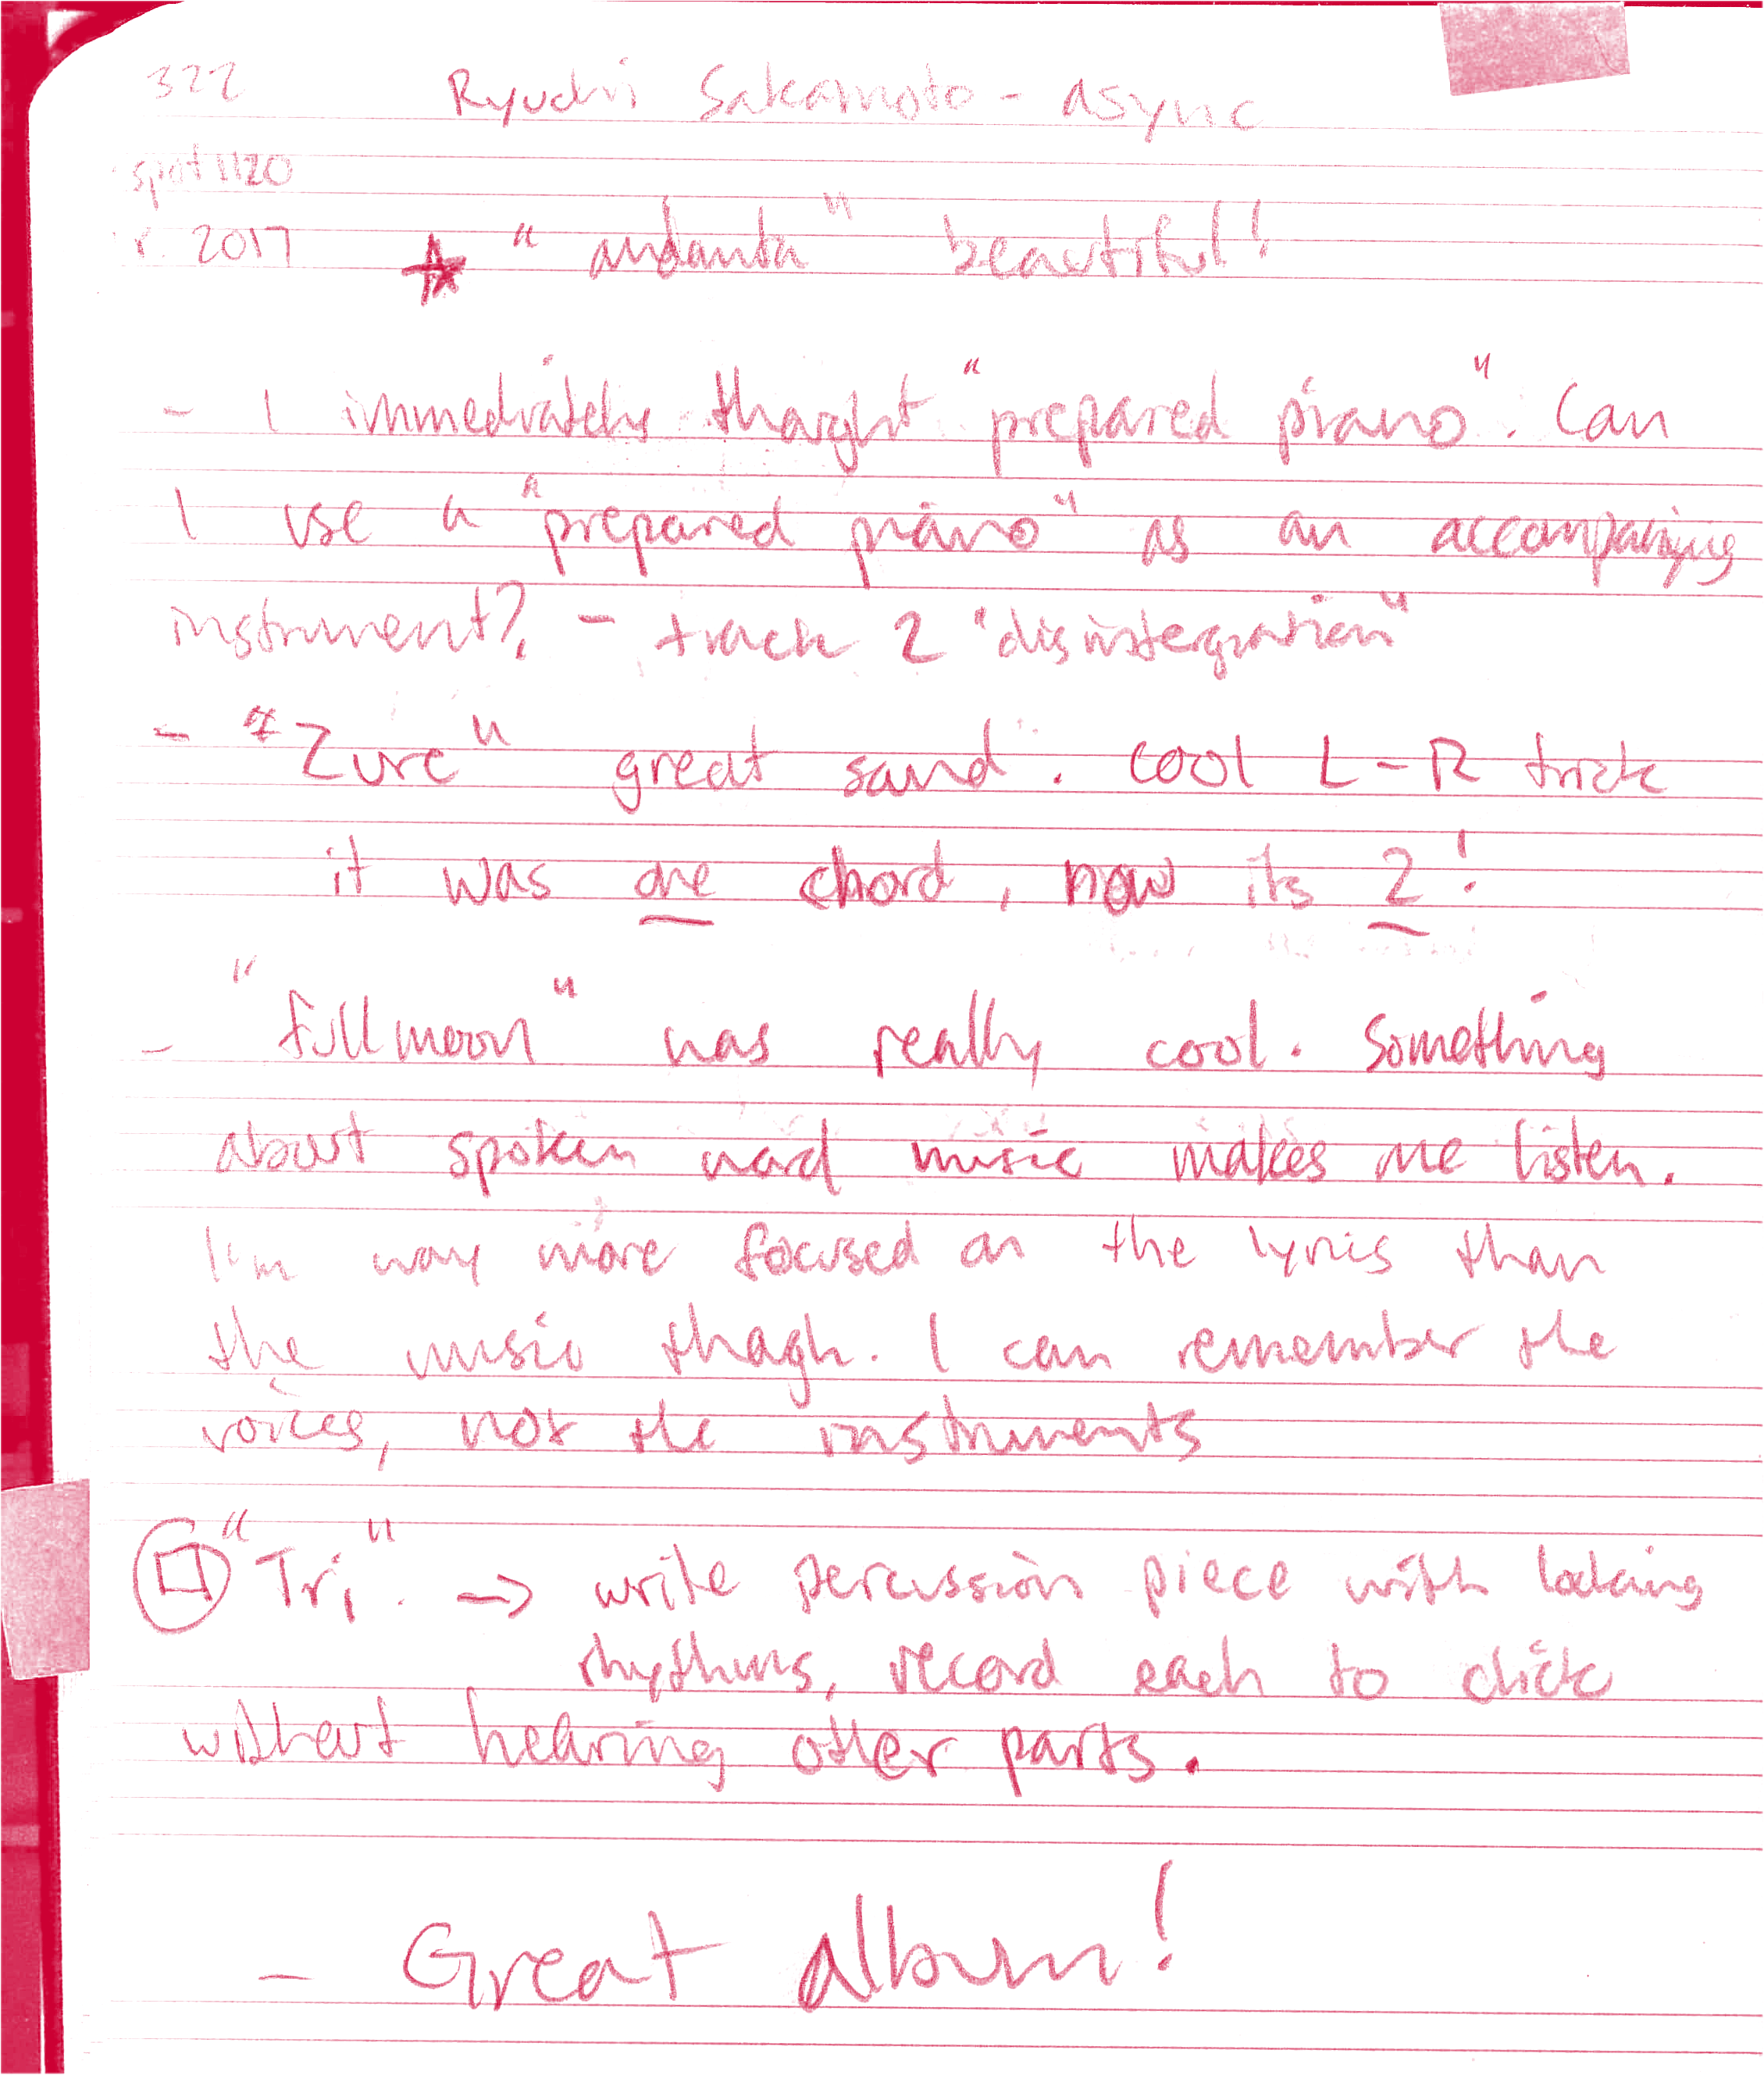 322 Ryuchi Sakamoto - async
spot 1120
r. 2017 ★ "andanta" beautiful!
- I immediately thought "prepared piano". Can
I use a "prepared piano" as an accompanying
instrument? - track 2 "disintegration"
- "Zure" great sound. cool L-R trick
it was one chord, now its 2!
- "fullmoon" was really cool. Something
about spoken word music makes me listen.
I'm way more focused on the lyrics than
the music though. I can remember the
voices, not the instruments
□ "Tri". → write percussion piece with locking
rhythms, record each to click
without hearing other parts.
- Great album!